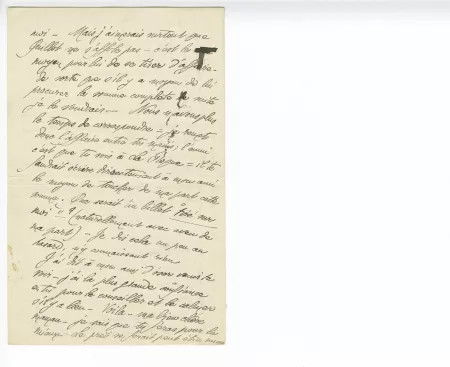 moi - Mais j'aimerais surtout que
Guillot ne s'affole pas - c'est le
moyen pour lui de se tirer d'affaire -
de sorte que s'il y a moyen de lui
procurer la somme complète de suite
je le voudrais - Nous n'avons plus
le temps de correspondre - je remets
donc l'affaire entre tes mains; l'ami
c'est que tu vois à la - il te
faudrait écrire directement à mon ami
le moyen de toucher de ma part cette
somme. Par un billet
moi "? (naturellement avec aveu de
ma part) - Je dis cela un peu au
hasard, n'y connaissant rien
J'ai dit à mon ami d'
voir - j'ai la plus grande confiance
en toi pour le conseiller et le calmer
s'il y a lieu - Voilà - ma bien chère
- je sais que tu feras pour le
mieux - Le peut être